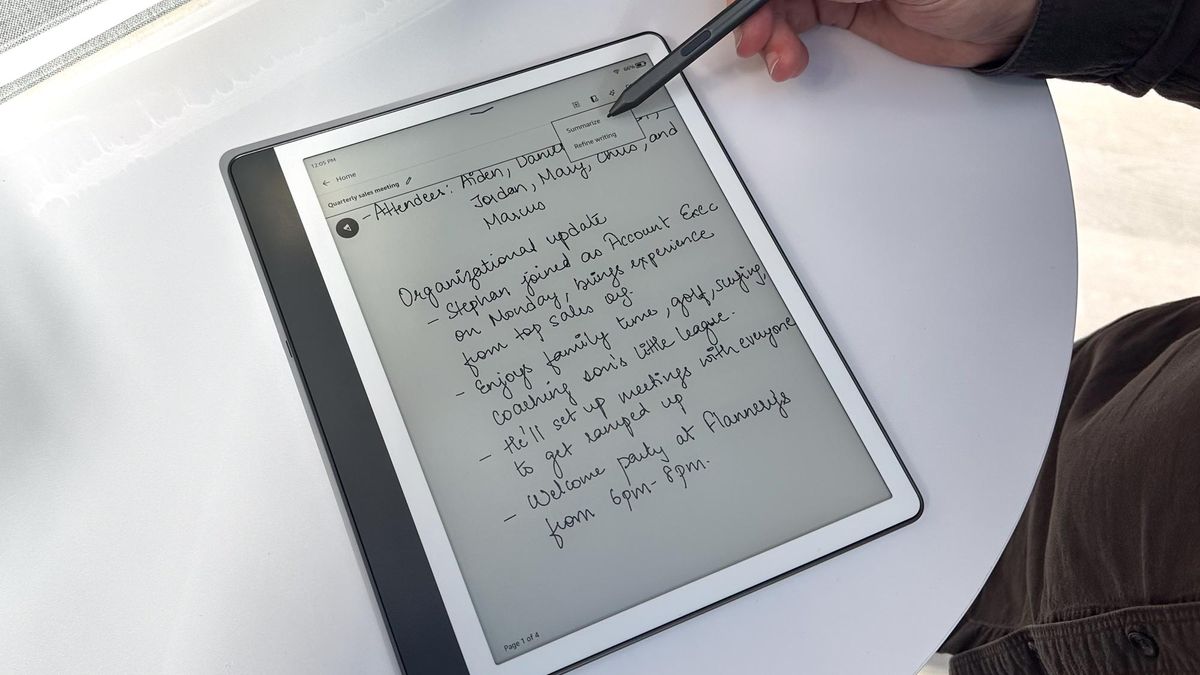 66%
12:05 PM
← Home
Summarize
Refine writing
Quarterly sales meeting
- Attendees: Aiden,
Jordan, Mary, Chris, and
Marcus
Organizational update
- Stephan joined as Account Exec
on Monday, brings experience
from top sales org.
- Enjoys family time, golf, surfing,
coaching son's little league.
- He'll set up meetings with everyone
to get ramped up
- Welcome party at Flannerys
from 6pm-8pm.
Page 1 of 4